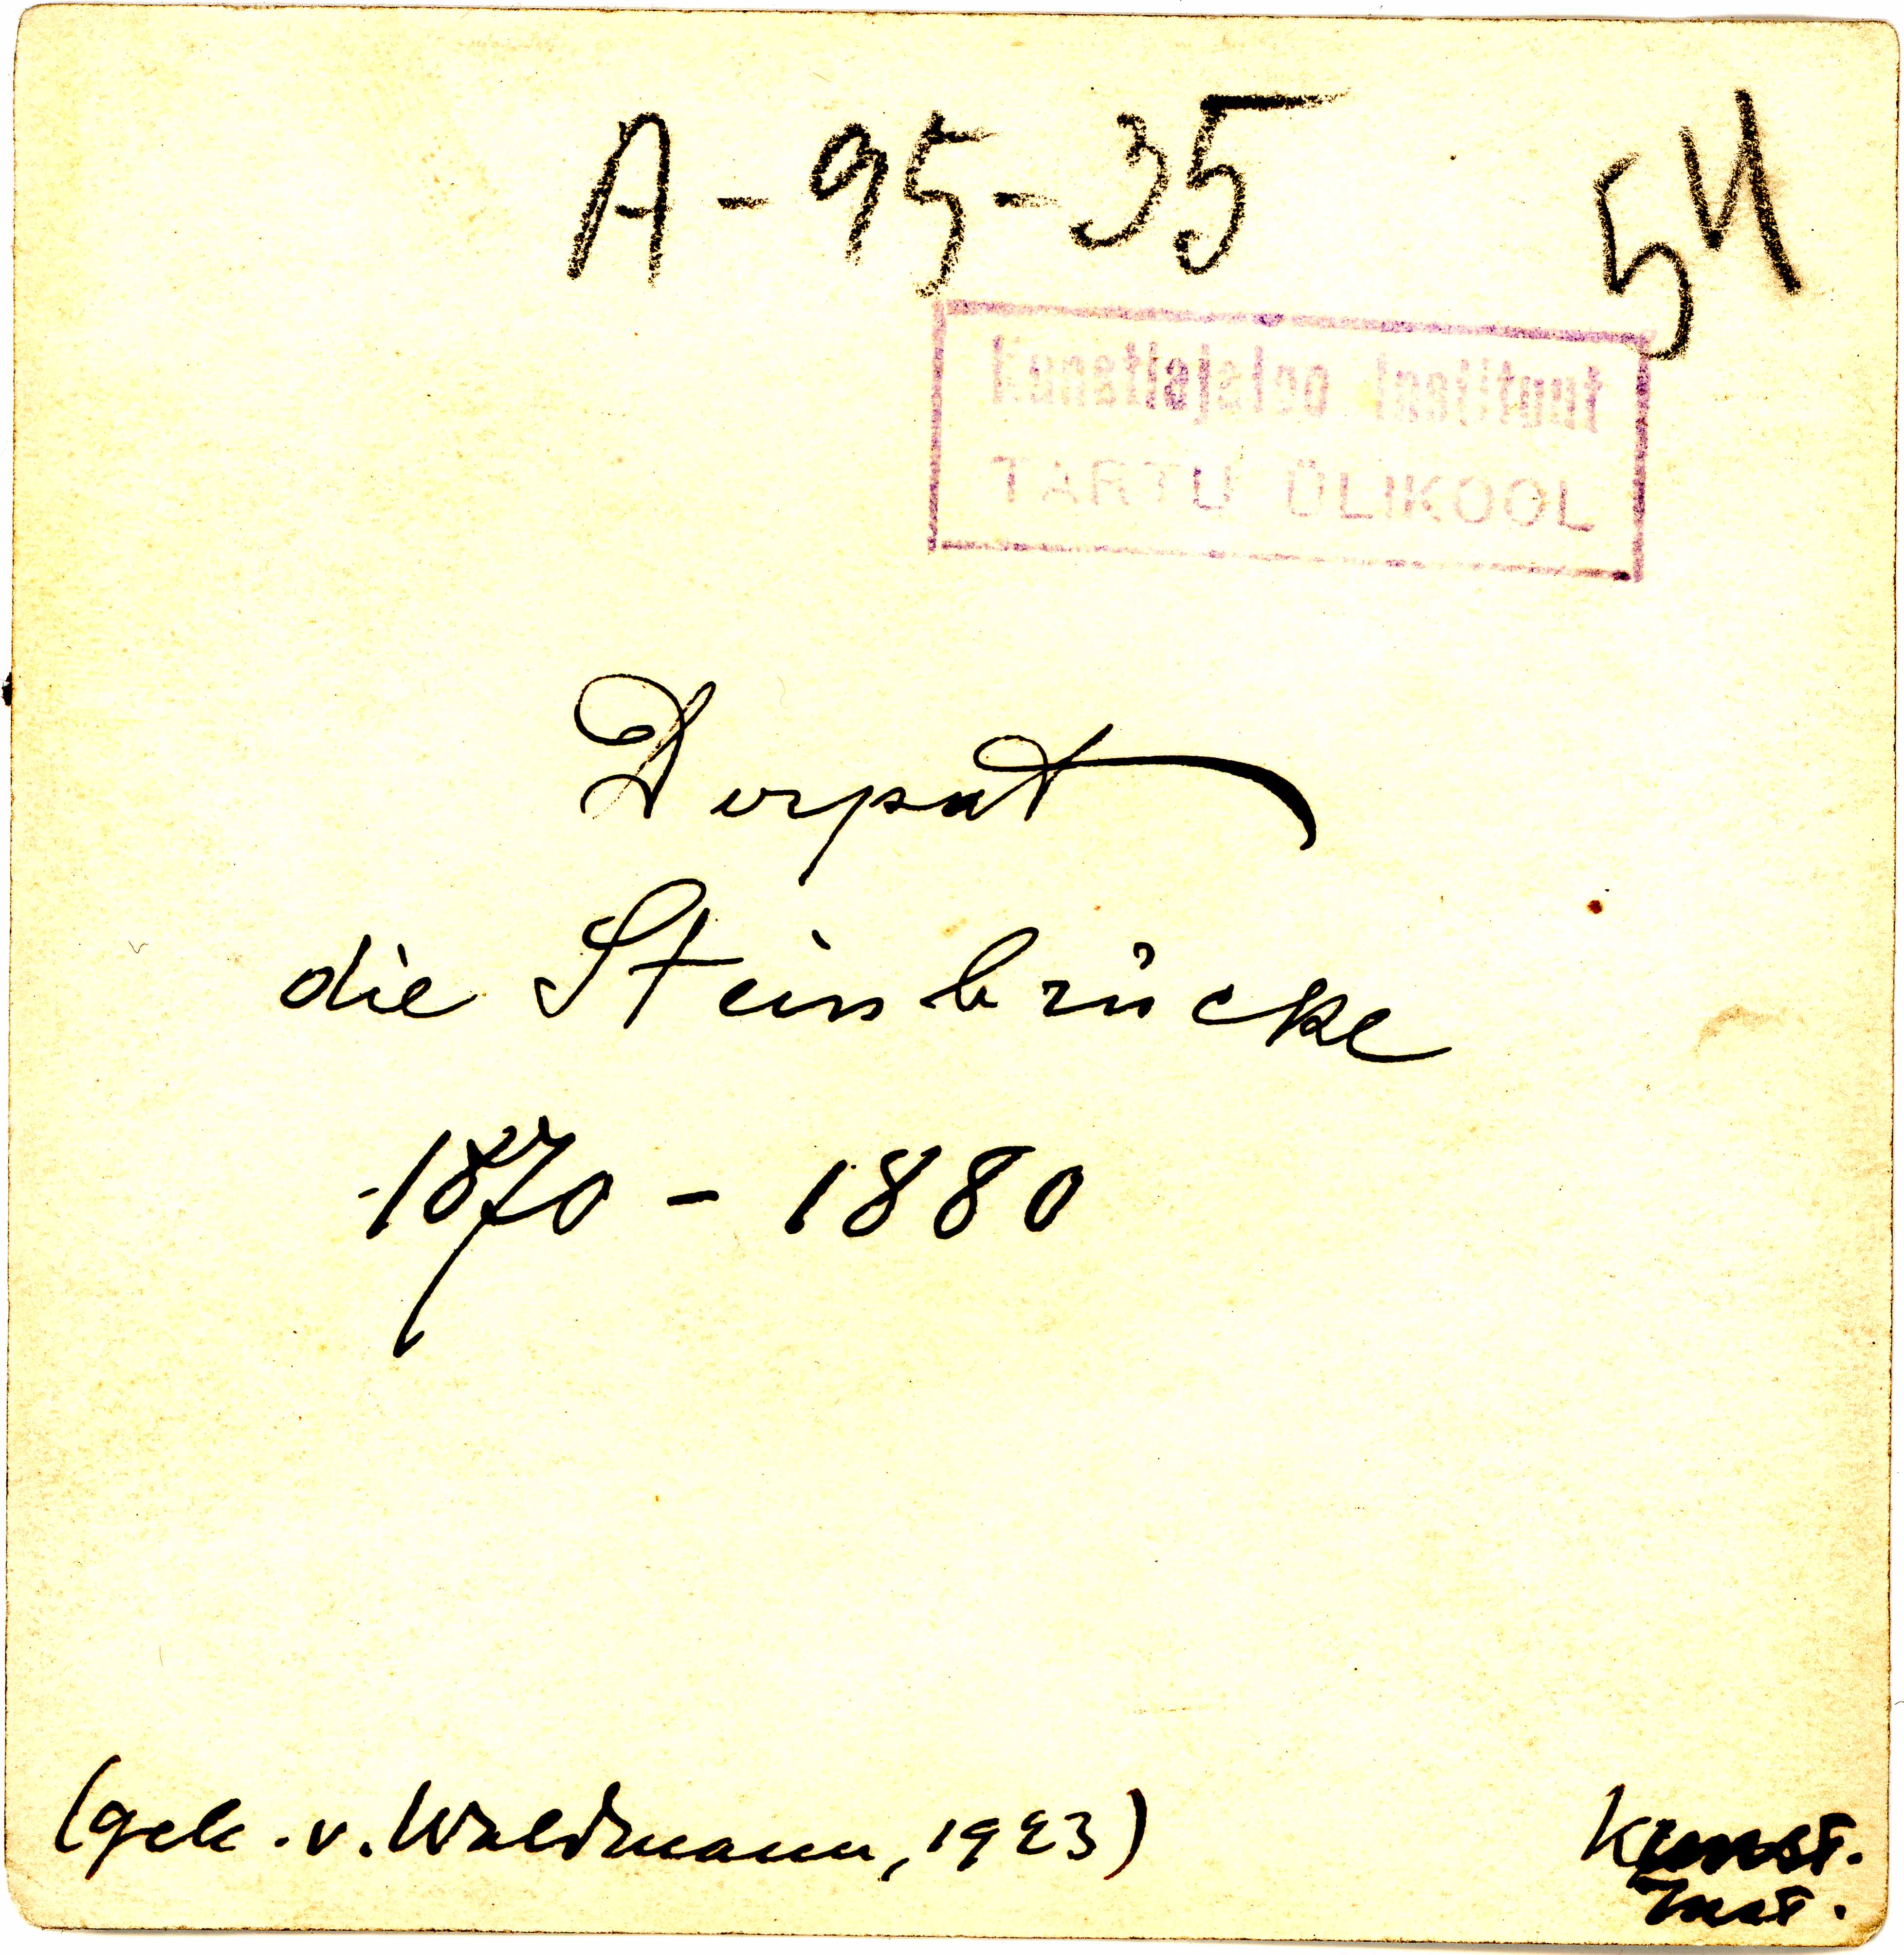 A-95-35 54
Kunstiajaloo Instituut
TARTU ÜLIKOOL
Dorpat
die Steinbrücke
1870 - 1880
(gek. v. Waldmann, 1923)
Kunst.
Inst.